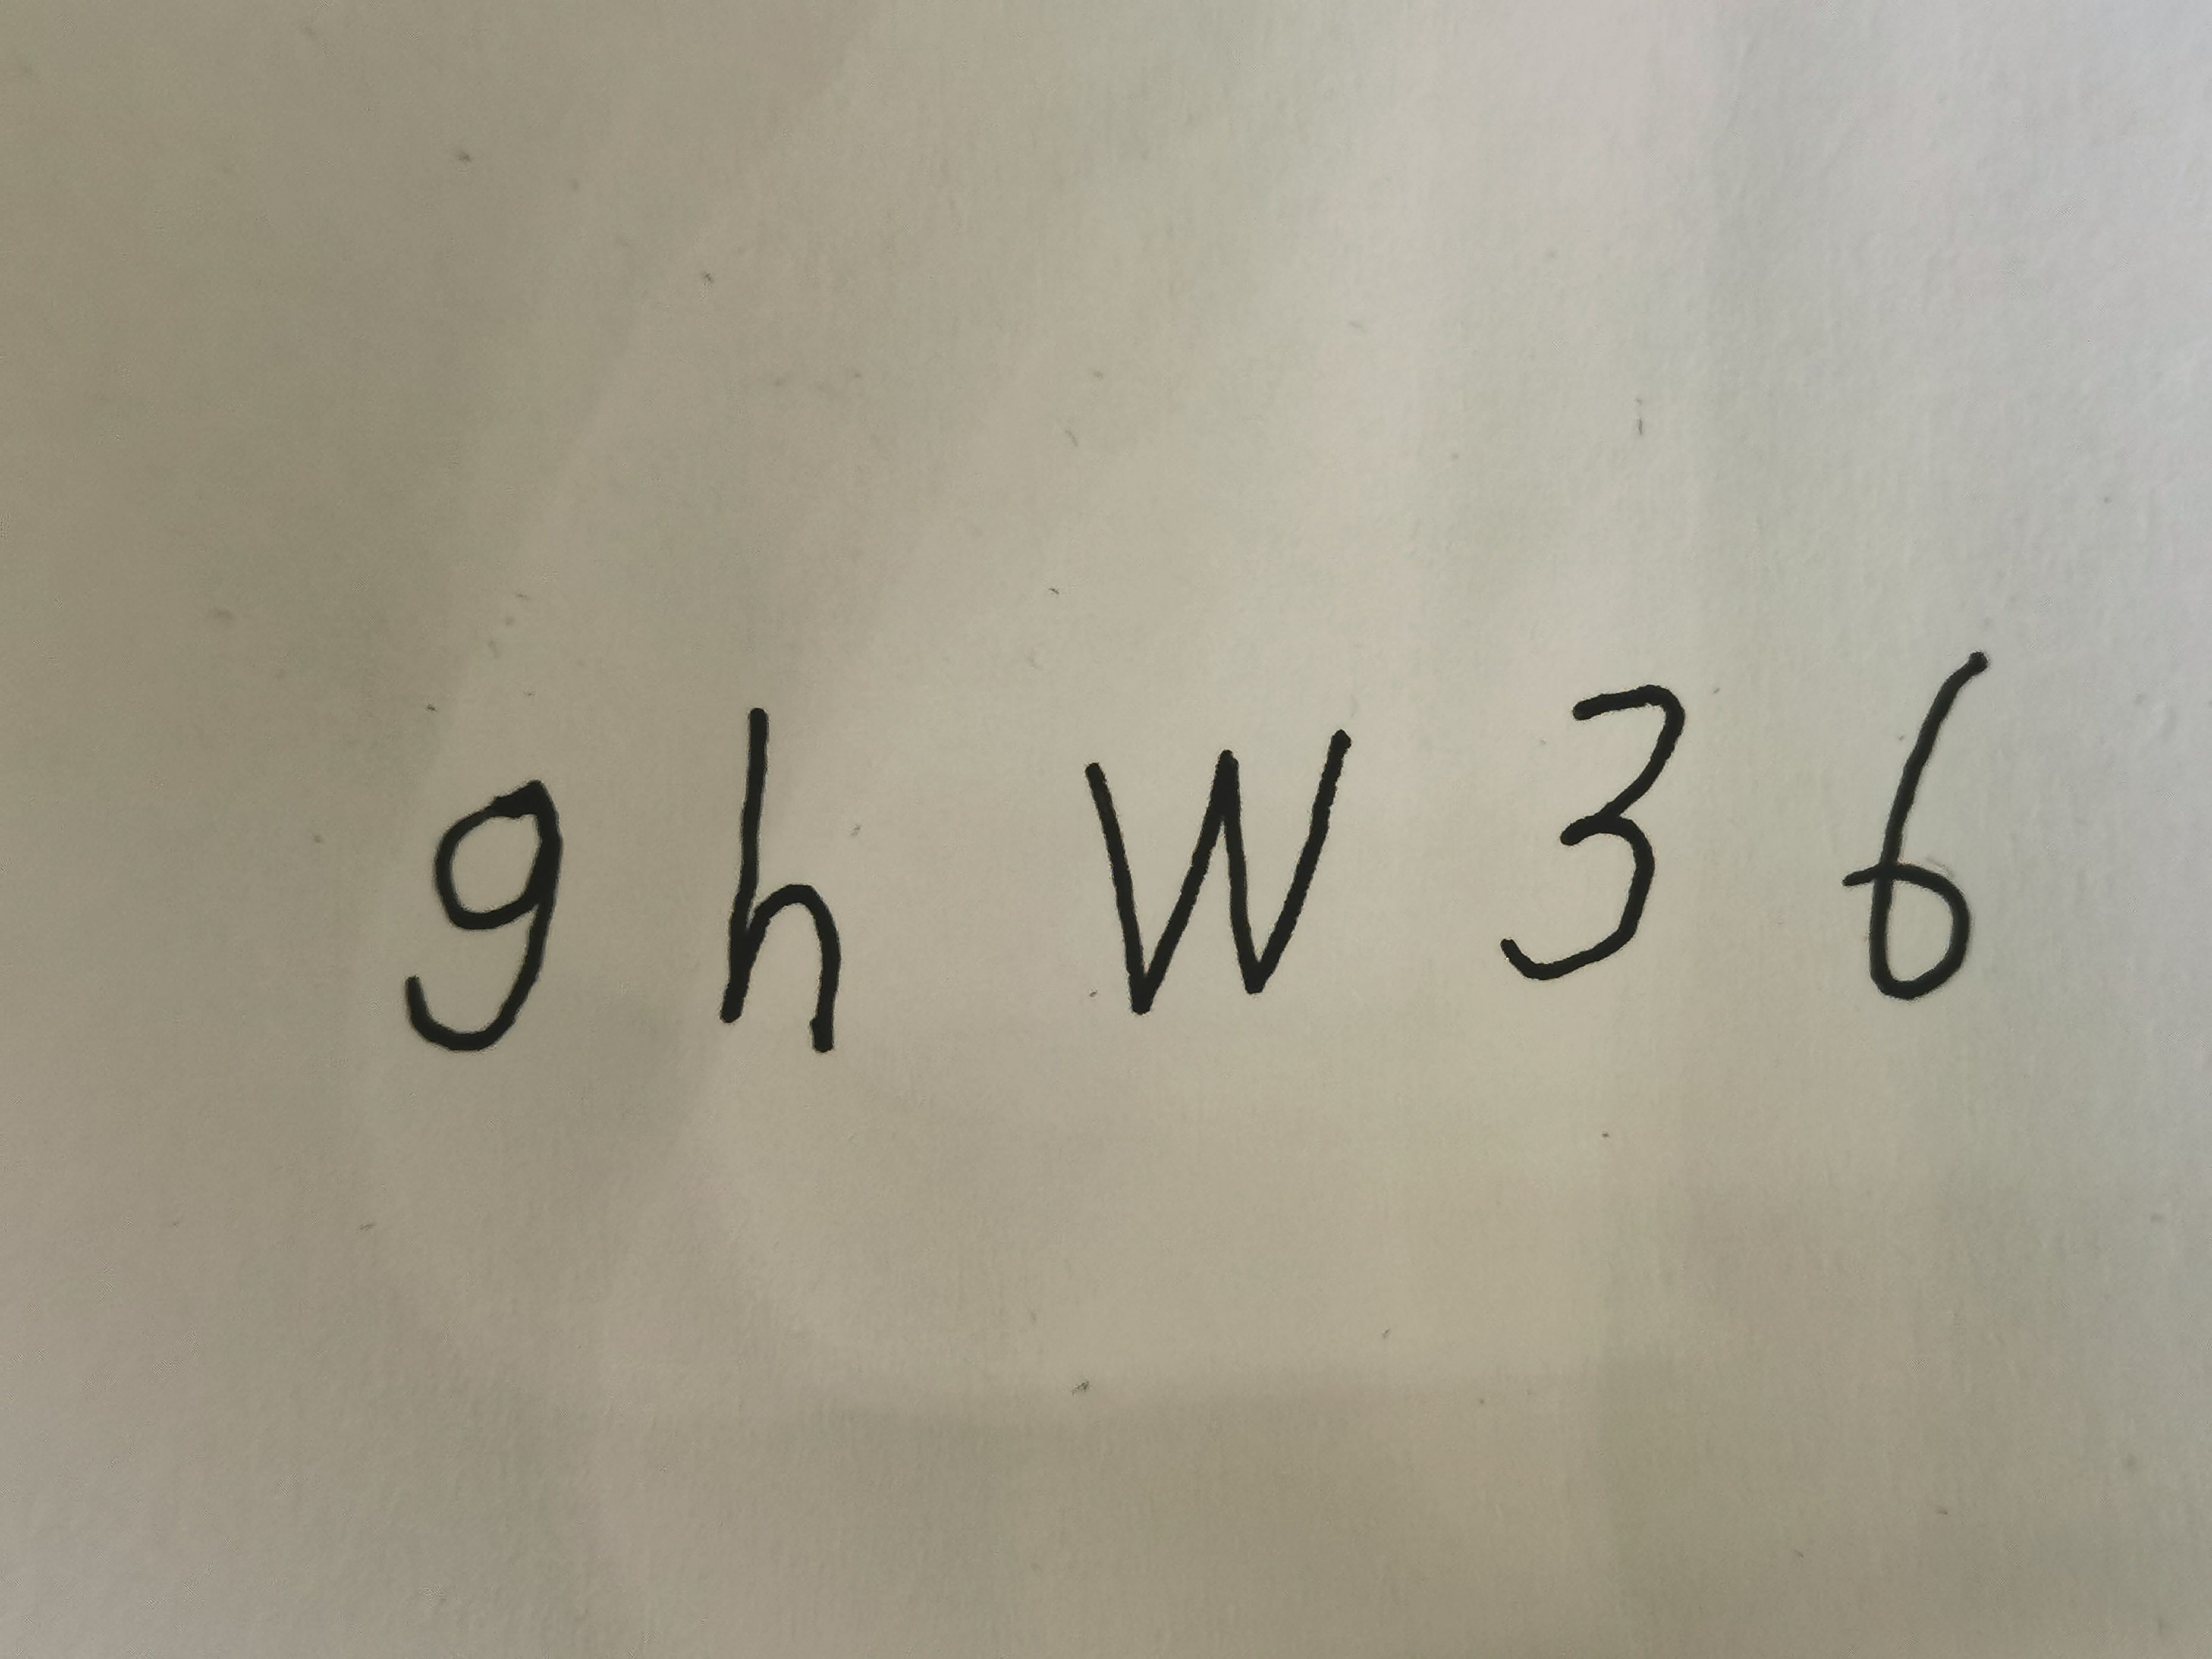 g h W 3 6